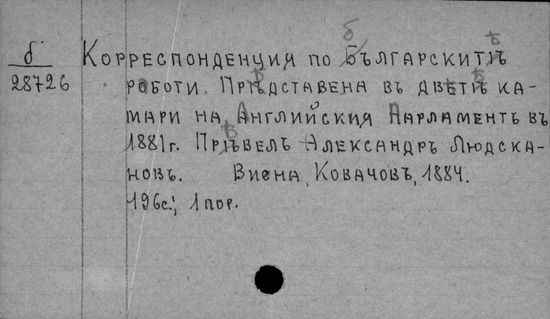 б
28726
Корреспонденция по българскитѣ
роботи. Прѣдставена въ дветѣ ка-
мари на Английския Парламентъ въ
1881г. Прѣвелъ Александръ Людска-
новъ. Виена, Ковачовъ, 1884.
196с.; 1 пор.